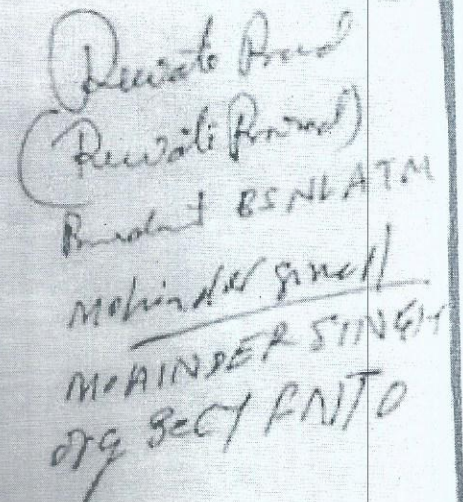 Rewati Prasad
(Rewati Prasad)
President BSNL ATM
Mohinder Singh
MOHINDER SINGH
Org Secy FNTO